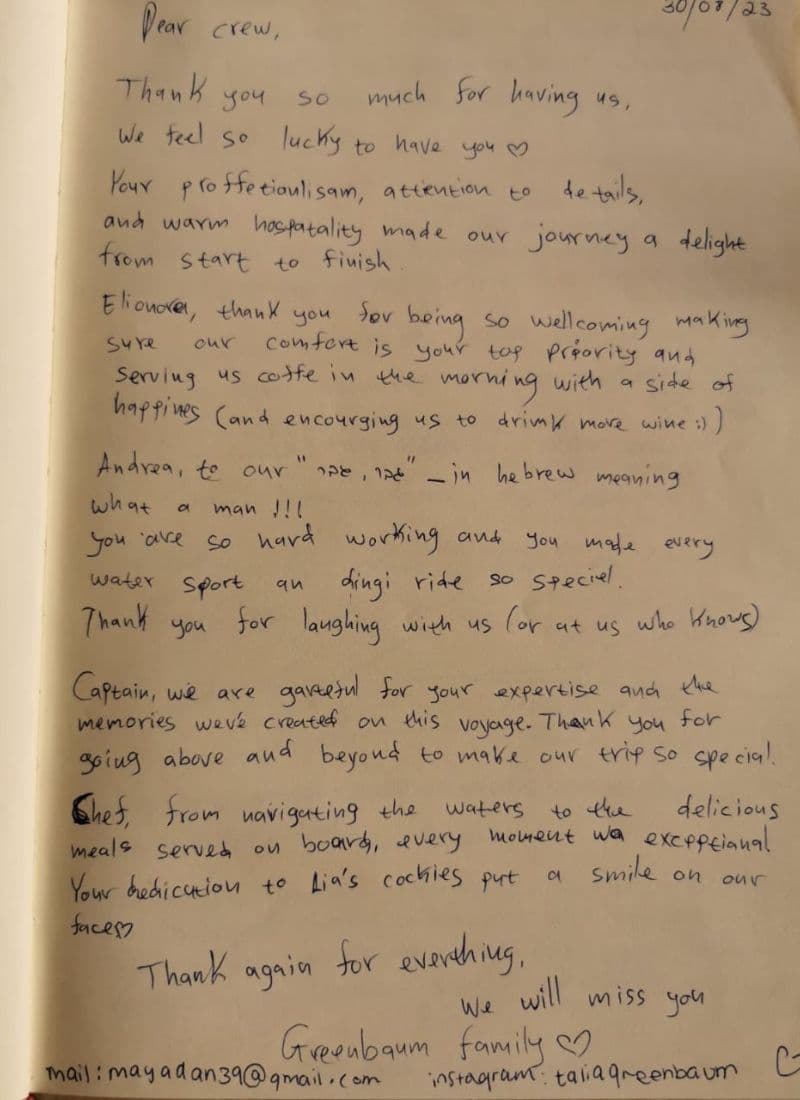 30/07/23
Dear crew,
Thank you so much for having us,
We feel so lucky to have you ♡
Your proffetioulisam, attention to details,
and warm hospatality made our journey a delight
from start to finish.
Elionora, thank you for being so wellcoming making
sure our comfort is your top priority and
serving us coffe in the morning with a side of
happines (and encourging us to drink more wine :) )
Andrea, to our "גבר, גבר" - in hebrew meaning
what a man !!!
you are so hard working and you made every
water sport an dingi ride so speciel.
Thank you for laughing with us (or at us who knows)
Captain, we are gareful for your expertise and the
memories we've created on this voyage. Thank you for
going above and beyond to make our trip so special.
Chef, from navigating the waters to the delicious
meals served on board, every moment wa exceptianal
Your dedication to Lia's cockies put a smile on our
face♡
Thank again for everthing,
We will miss you
Greenbaum family ♡
mail: mayadan39@gmail.com instagram: taliagreenbaum